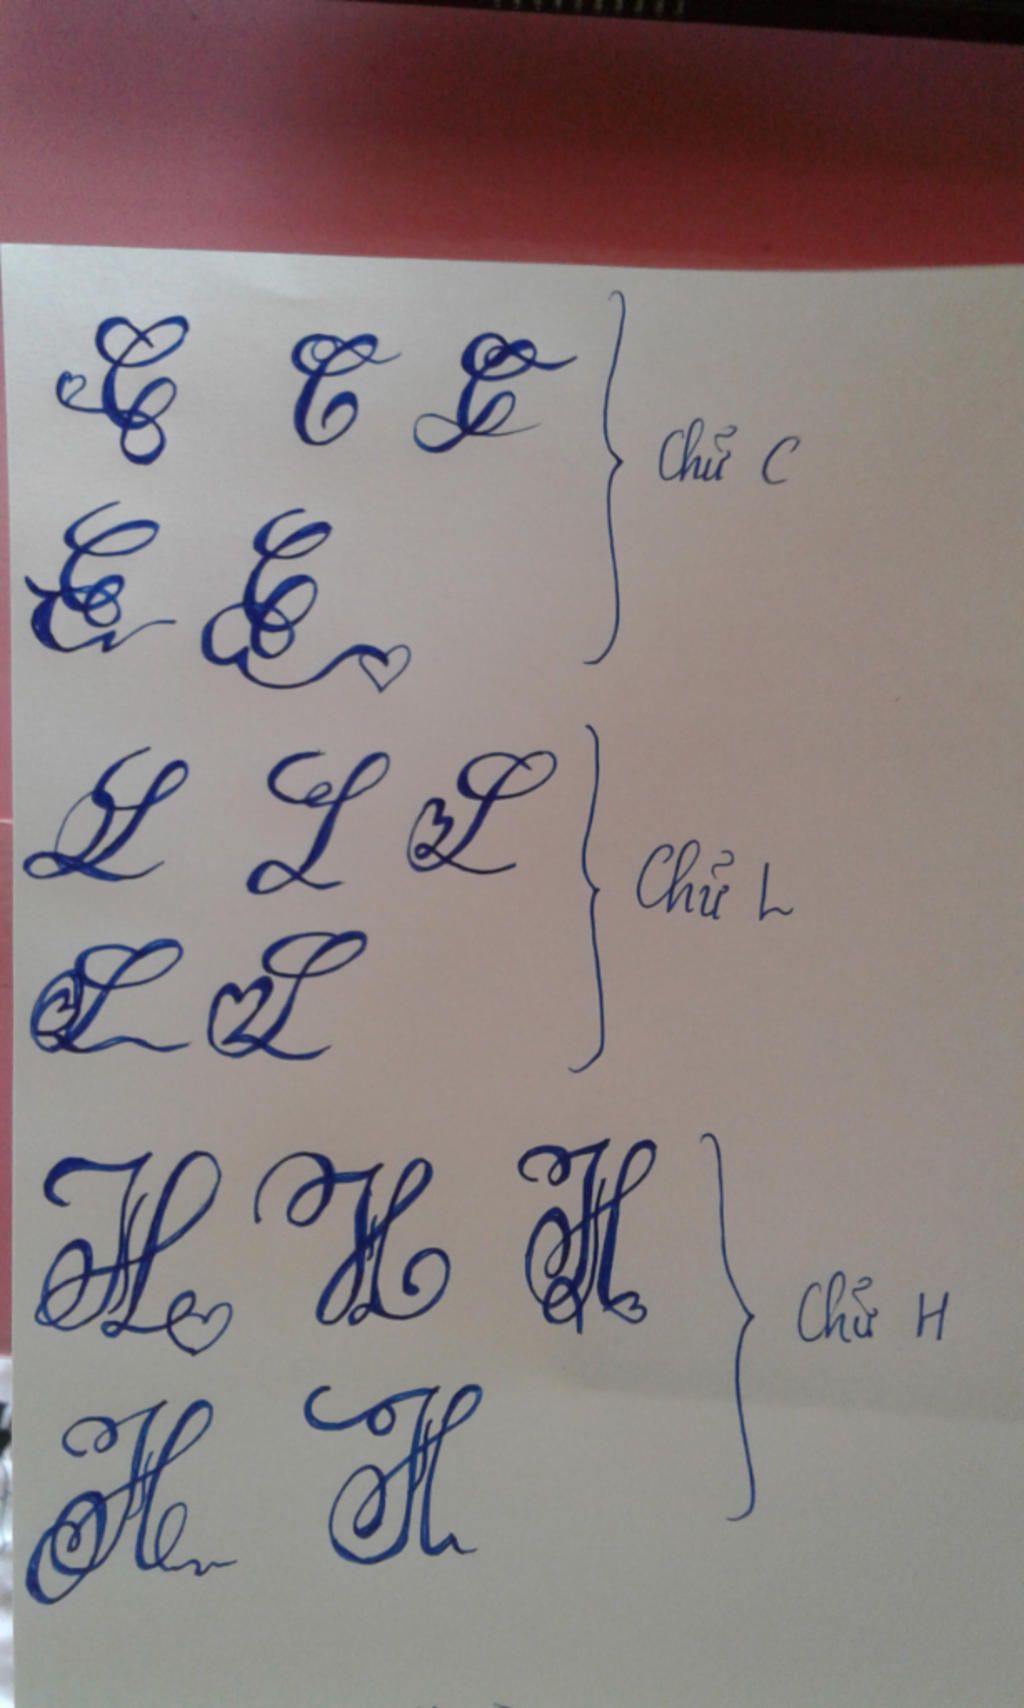 C C C
C C
Chữ C
L L L
L L
Chữ L
H H H
H H
Chữ H